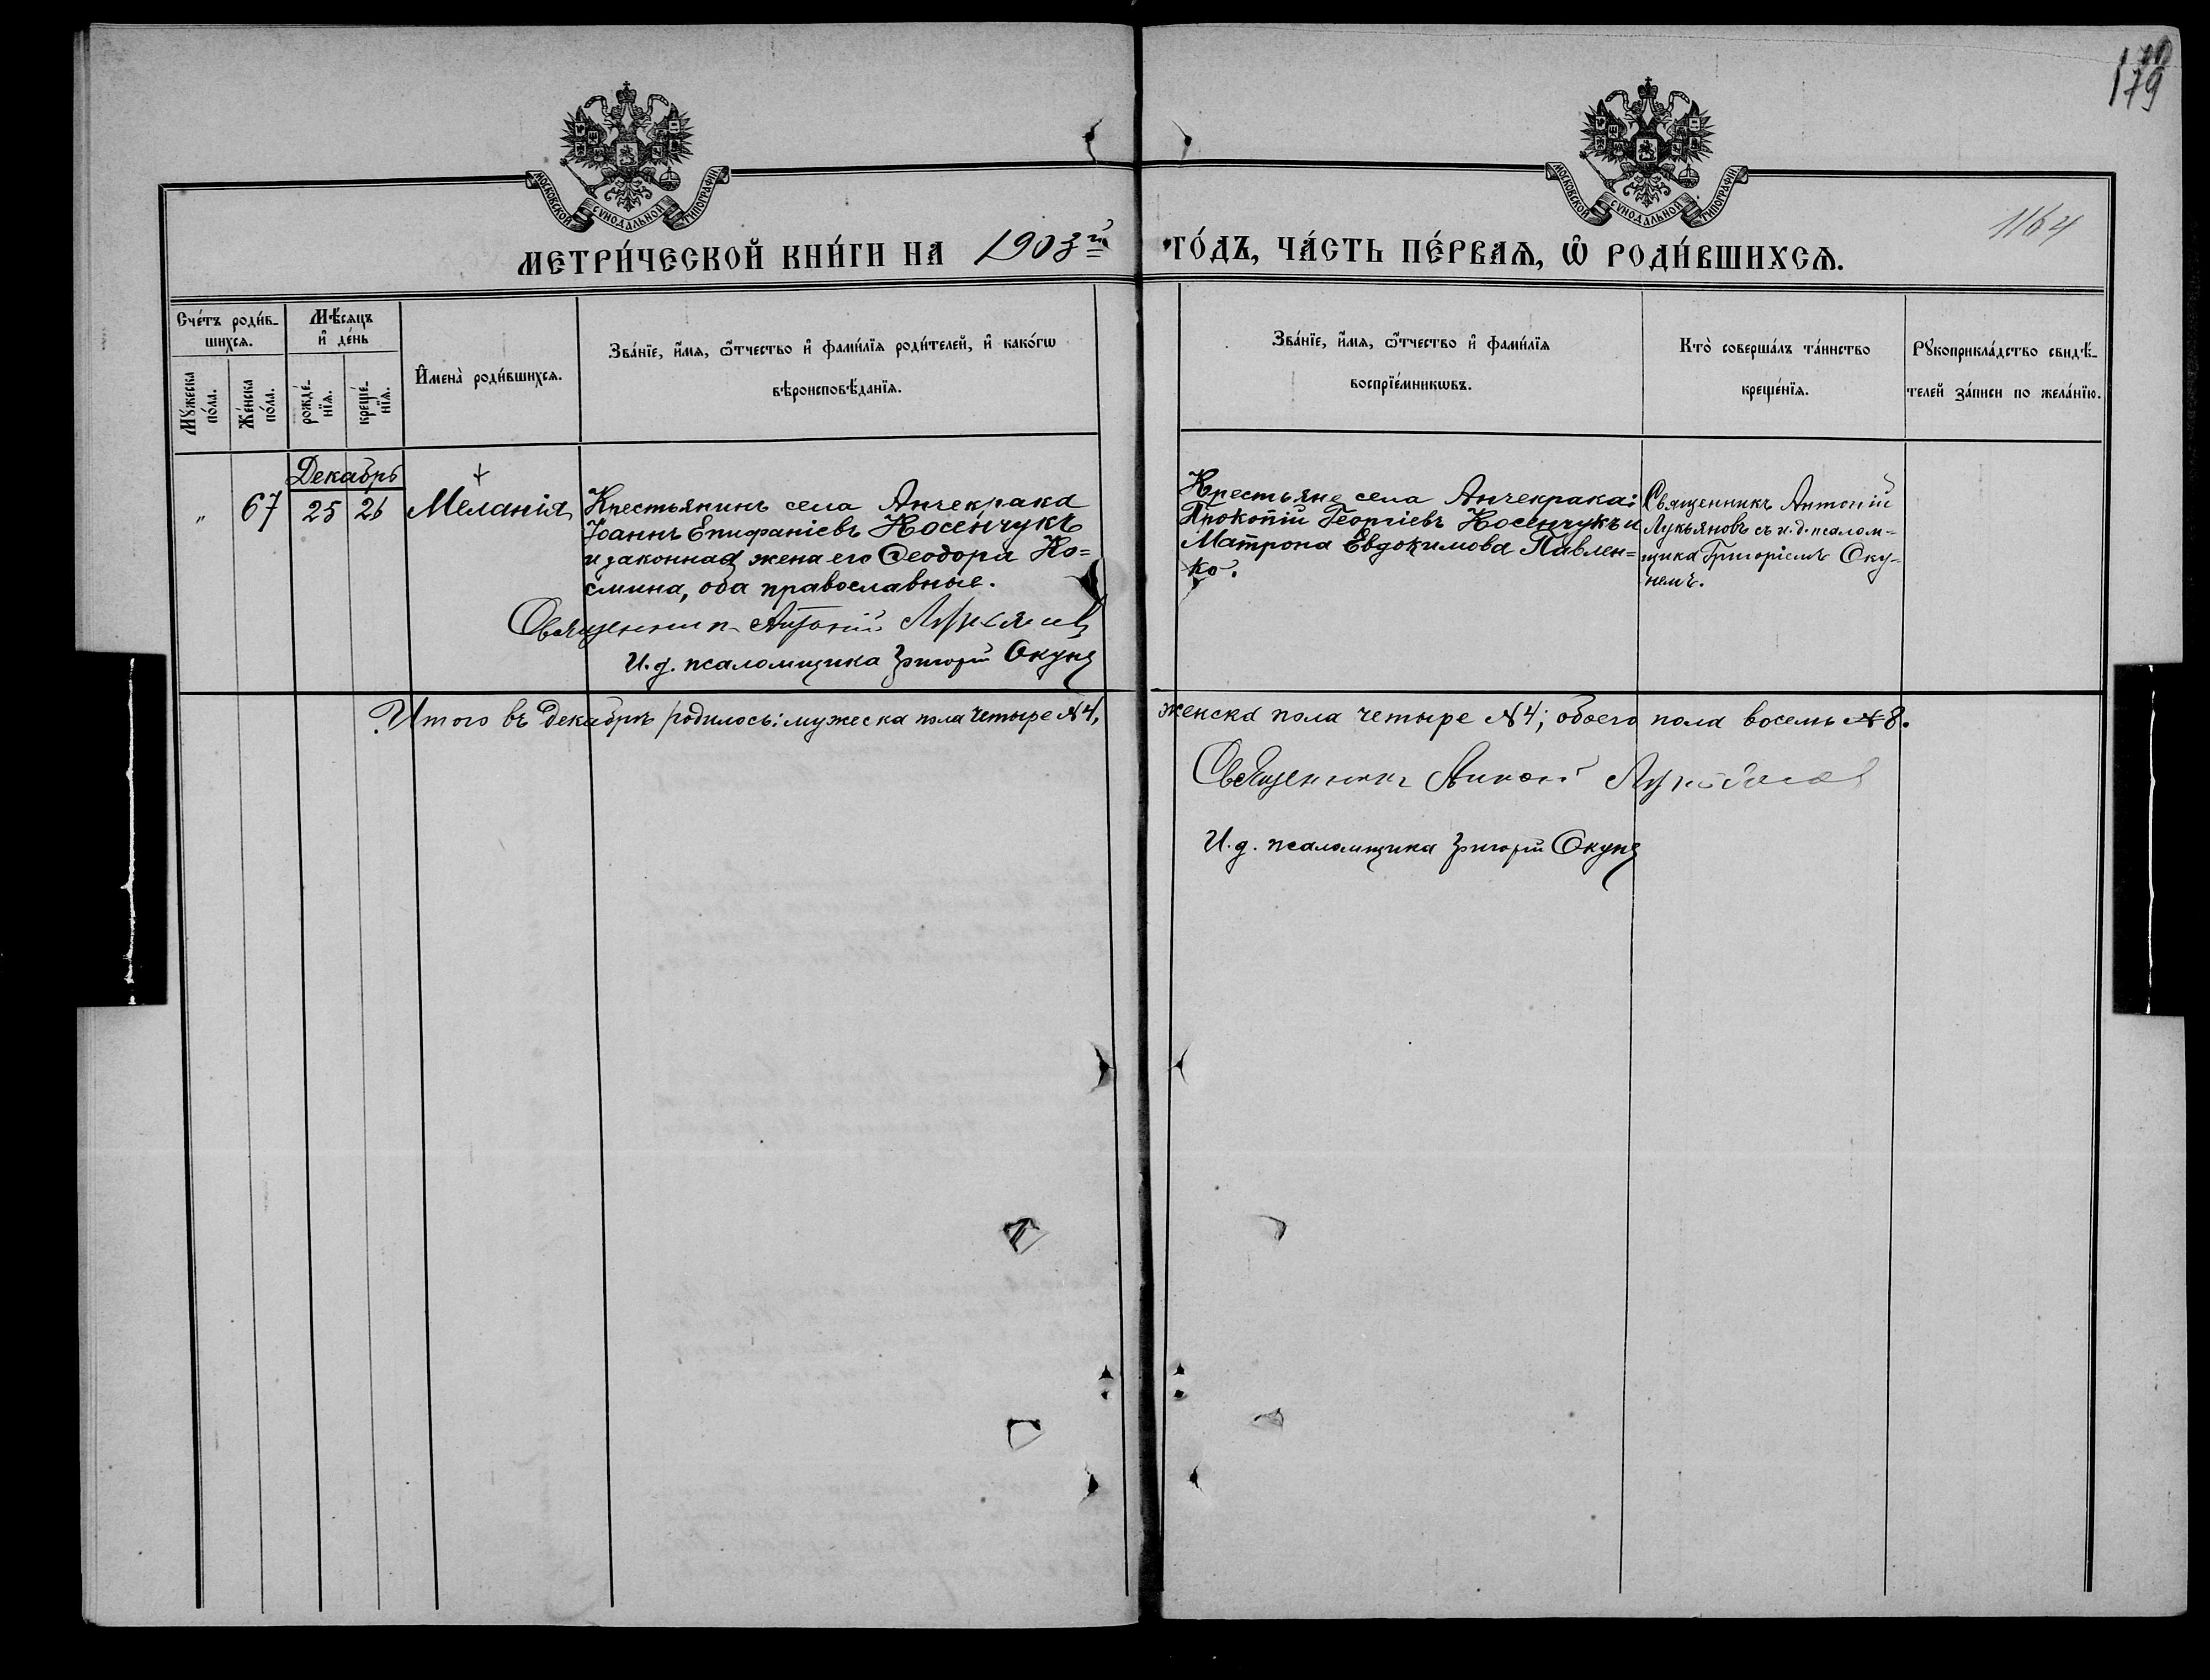 179
1164
МОСКОВСКОЙ СѴНОДАЛЬНОЙ ТИПОГРАФІИ
МОСКОВСКОЙ СѴНОДАЛЬНОЙ ТИПОГРАФІИ
МЕТРИ́ЧЕСКОЙ КНИ́ГИ НА 1903й ГО́ДЪ, ЧА́СТЬ ПЕ́РВАѦ, Ѡ҆ РОДИ́ВШИХСѦ.
Сче́тъ роди́в-
шихсѧ.
Мꙋ́жеска
по́ла.
Же́нска
по́ла.
Мѣ́сѧцъ
и҆ де́нь
рожде́-
нїѧ.
креще́-
нїѧ.
И҆мена̀ роди́вшихсѧ.
Зва́нїе, и҆́мѧ, ѻ҆́тчество и҆ фами́лїѧ роди́телей, и҆ како́гѡ
вѣроисповѣ́данїѧ.
Зва́нїе, и҆́мѧ, ѻ҆́тчество и҆ фами́лїѧ
воспрїе́мникѡвъ.
Кто̀ соверша́лъ та́инство
креще́нїѧ.
Рꙋкоприкла́дство свидѣ́-
телей за́писи по жела́нїю.
Декабрь
" 67 25 26 Меланія
Крестьянинъ села Анчекрака
Іоаннъ Епифаніевъ Носенчукъ
и законная жена его Ѳеодора Ко=
смина, оба православные.
Священникъ Антоній Лукьяновъ
И.д. псаломщика Григорій Окунь
Крестьяне села Анчекрака:
Прокопій Георгіевъ Носенчукъ и
Матрона Евдокимова Павлен=
ко.
Священникъ Антоній
Лукьяновъ съ и.д. псалом=
щика Григоріемъ Оку=
немъ.
Итого въ Декабрѣ родилось: мужеска пола четыре №4, женска пола четыре №4; обоего пола восемь №8.
Священникъ Антоній Лукьяновъ
И.д. псаломщика Григорій Окунь